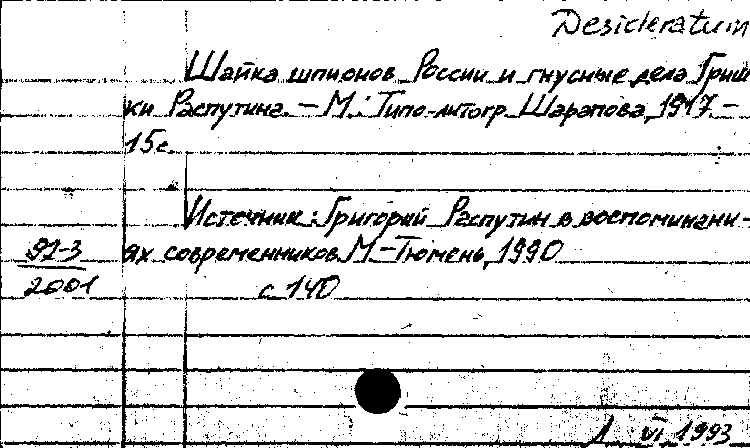 Desideratum
Шайка шпионов России и гнусные дела Гриш
ки Распутина. — М.: Типо-литогр. Шарапова, 1917. —
15 с.
Источник: Григорий Распутин в воспоминани-
91-3 ях современников. М.-Тюмень, 1990
2001 с. 140
VI. 1993